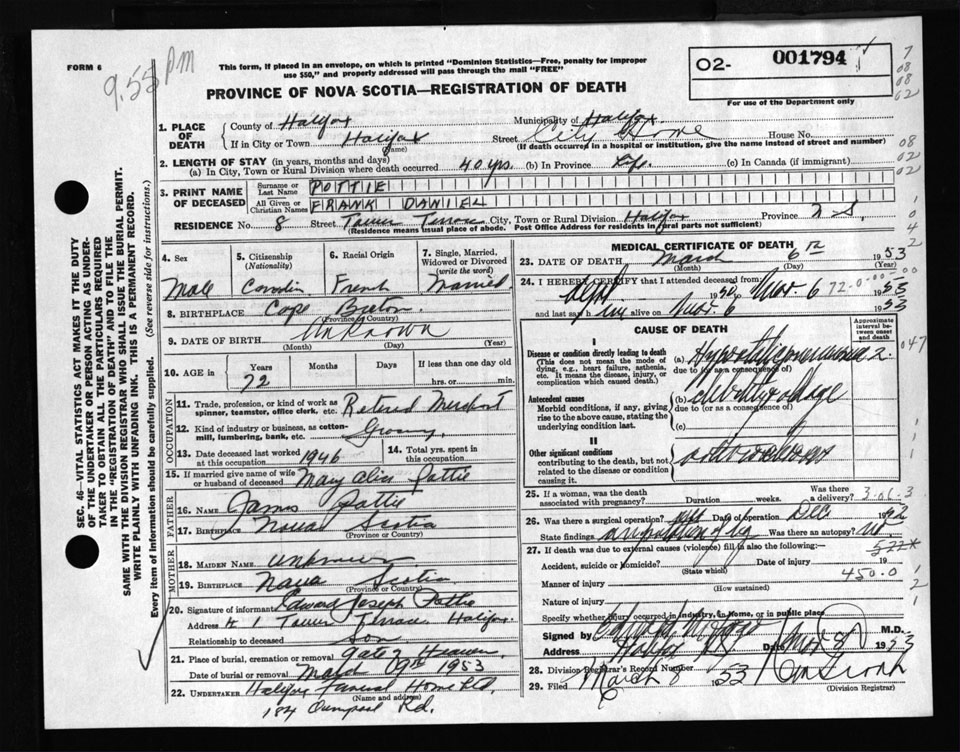 FORM 6
9.55 PM
This form, if placed in an envelope, on which is printed "Dominion Statistics—Free, penalty for improper
use $50," and properly addressed will pass through the mail "FREE"
PROVINCE OF NOVA SCOTIA—REGISTRATION OF DEATH
02- 001794
For use of the Department only
1. PLACE OF DEATH
County of Halifax Municipality of Halifax
If in City or Town Halifax Street City Home House No.
(Name) (If death occurred in a hospital or institution, give the name instead of street and number)
2. LENGTH OF STAY (in years, months and days)
(a) In City, Town or Rural Division where death occurred 40 yrs. (b) In Province Life. (c) In Canada (if immigrant)
3. PRINT NAME OF DECEASED
Surname or Last Name POTTIE
All Given or Christian Names FRANK DANIEL
RESIDENCE No. 8 Street Tower Terrace City, Town or Rural Division Halifax Province N.S.
(Residence means usual place of abode. Post Office Address for residents in rural parts not sufficient)
4. Sex
Male
5. Citizenship
(Nationality)
Canadian
6. Racial Origin
French
7. Single, Married, Widowed or Divorced
(write the word)
Married
8. BIRTHPLACE Cape Breton
(Province or Country)
9. DATE OF BIRTH Unknown
(Month) (Day) (Year)
10. AGE in
Years Months Days If less than one day old
72 hrs. or min.
OCCUPATION
11. Trade, profession, or kind of work as
spinner, teamster, office clerk, etc. Retired Merchant
12. Kind of industry or business, as cotton-
mill, lumbering, bank, etc. Grocery
13. Date deceased last worked
at this occupation 1946
14. Total yrs. spent in
this occupation
15. If married give name of wife
or husband of deceased Mary Alice Pottie
FATHER
16. Name James Pottie
17. Birthplace Nova Scotia
(Province or Country)
MOTHER
18. MAIDEN NAME Unknown
19. BIRTHPLACE Nova Scotia
(Province or Country)
20. Signature of informant Edward Joseph Pottie
Address # 1 Tower Terrace Halifax
Relationship to deceased Son
21. Place of burial, cremation or removal Gate of Heaven
Date of burial or removal March 9th 1953
22. UNDERTAKER Halifax Funeral Home Ltd.
(Name and address)
184 Rd.
MEDICAL CERTIFICATE OF DEATH
23. DATE OF DEATH March 6th 1953
(Month) (Day) (Year)
24. I HEREBY CERTIFY that I attended deceased from
Sept 1950 to Mar. 6 1953
72-0
00-00
and last saw him alive on Mar. 6 1953
CAUSE OF DEATH
Approximate interval between onset and death
I
Disease or condition directly leading to death
(This does not mean the mode of dying, e.g., heart failure, asthenia, etc. It means the disease, injury, or complication which caused death.)
(a) 2.
due to (or as a consequence of)
Antecedent causes
Morbid conditions, if any, giving rise to the above cause, stating the underlying condition last.
(b)
due to (or as a consequence of)
(c)
II
Other significant conditions
contributing to the death, but not related to the disease or condition causing it.
25. If a woman, was the death
associated with pregnancy? Duration weeks. Was there a delivery?
3-06-3
26. Was there a surgical operation? Date of operation Dec. 1952
State findings amputation of leg Was there an autopsy? no.
27. If death was due to external causes (violence) fill in also the following:—
522X
Accident, suicide or homicide? Date of injury 19
(State which)
450-0
Manner of injury
(How sustained)
Nature of injury
Specify whether injury occurred in industry, in home, or in public place
Signed by M.D.
Address Halifax N.S. Date 1953
28. Division Registrar's Record Number
29. Filed March 8 1953
(Division Registrar)
SEC. 46—VITAL STATISTICS ACT MAKES IT THE DUTY
OF THE UNDERTAKER OR PERSON ACTING AS UNDER-
TAKER TO OBTAIN ALL THE PARTICULARS REQUIRED
IN THE "REGISTRATION OF DEATH" AND TO FILE THE
SAME WITH THE DIVISION REGISTRAR WHO SHALL ISSUE THE BURIAL PERMIT.
WRITE PLAINLY WITH UNFADING INK. THIS IS A PERMANENT RECORD.
Every item of information should be carefully supplied. (See reverse side for instructions.)
7
08
08
02
08
02
02
1
0
4
2
047
1
1
1
2
1